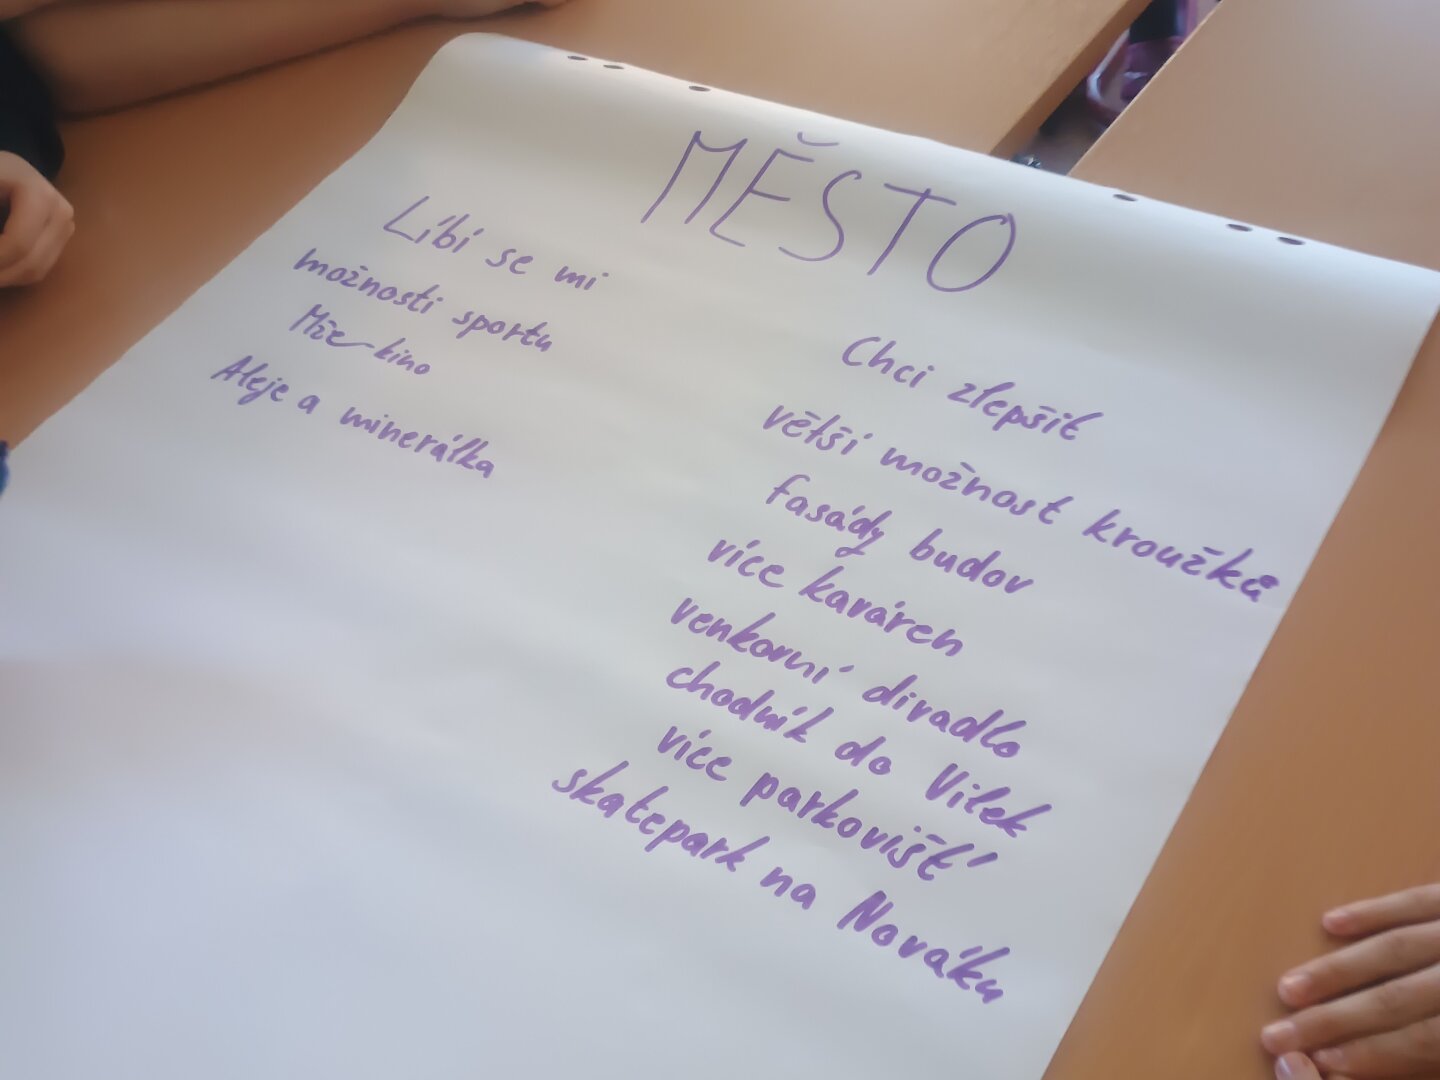 MĚSTO
Líbí se mi
možnosti sportu
Mže-kino
Aleje a minerálka
Chci zlepšit
větší možnost kroužků
fasády budov
více kaváren
venkovní divadlo
chodník do Vítek
více parkovišť
skatepark na Nováku